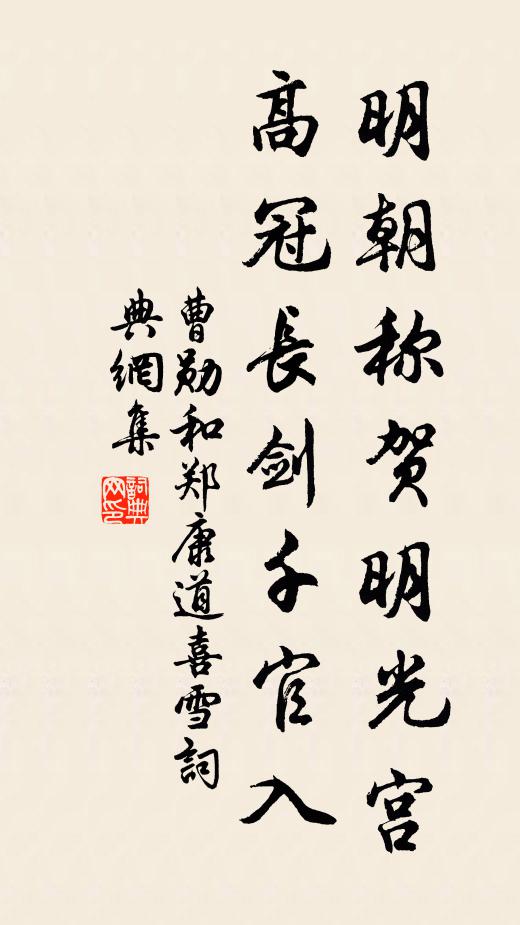 明朝称贺明光宫
高冠長剑千官入
曹勋和郑康道喜雪詞
典網集
詞典
网印